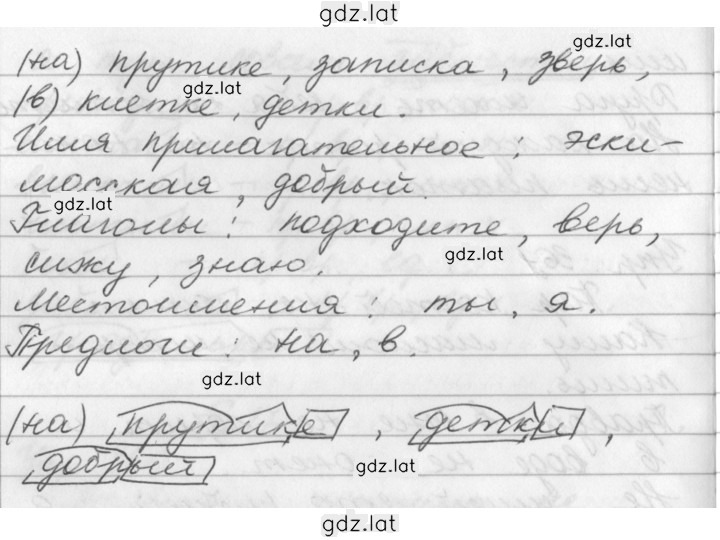 gdz.lat
(на) прутике, записка, зверь,
gdz.lat
(в) клетке, детки.
gdz.lat
Имя прилагательное: эски-
мосская, добрый.
gdz.lat
Глаголы: подходите, верь,
gdz.lat
сижу, знаю.
Местоимения: ты, я.
Предлоги: на, в.
gdz.lat
(на) прутике, детки,
добрый
gdz.lat
gdz.lat